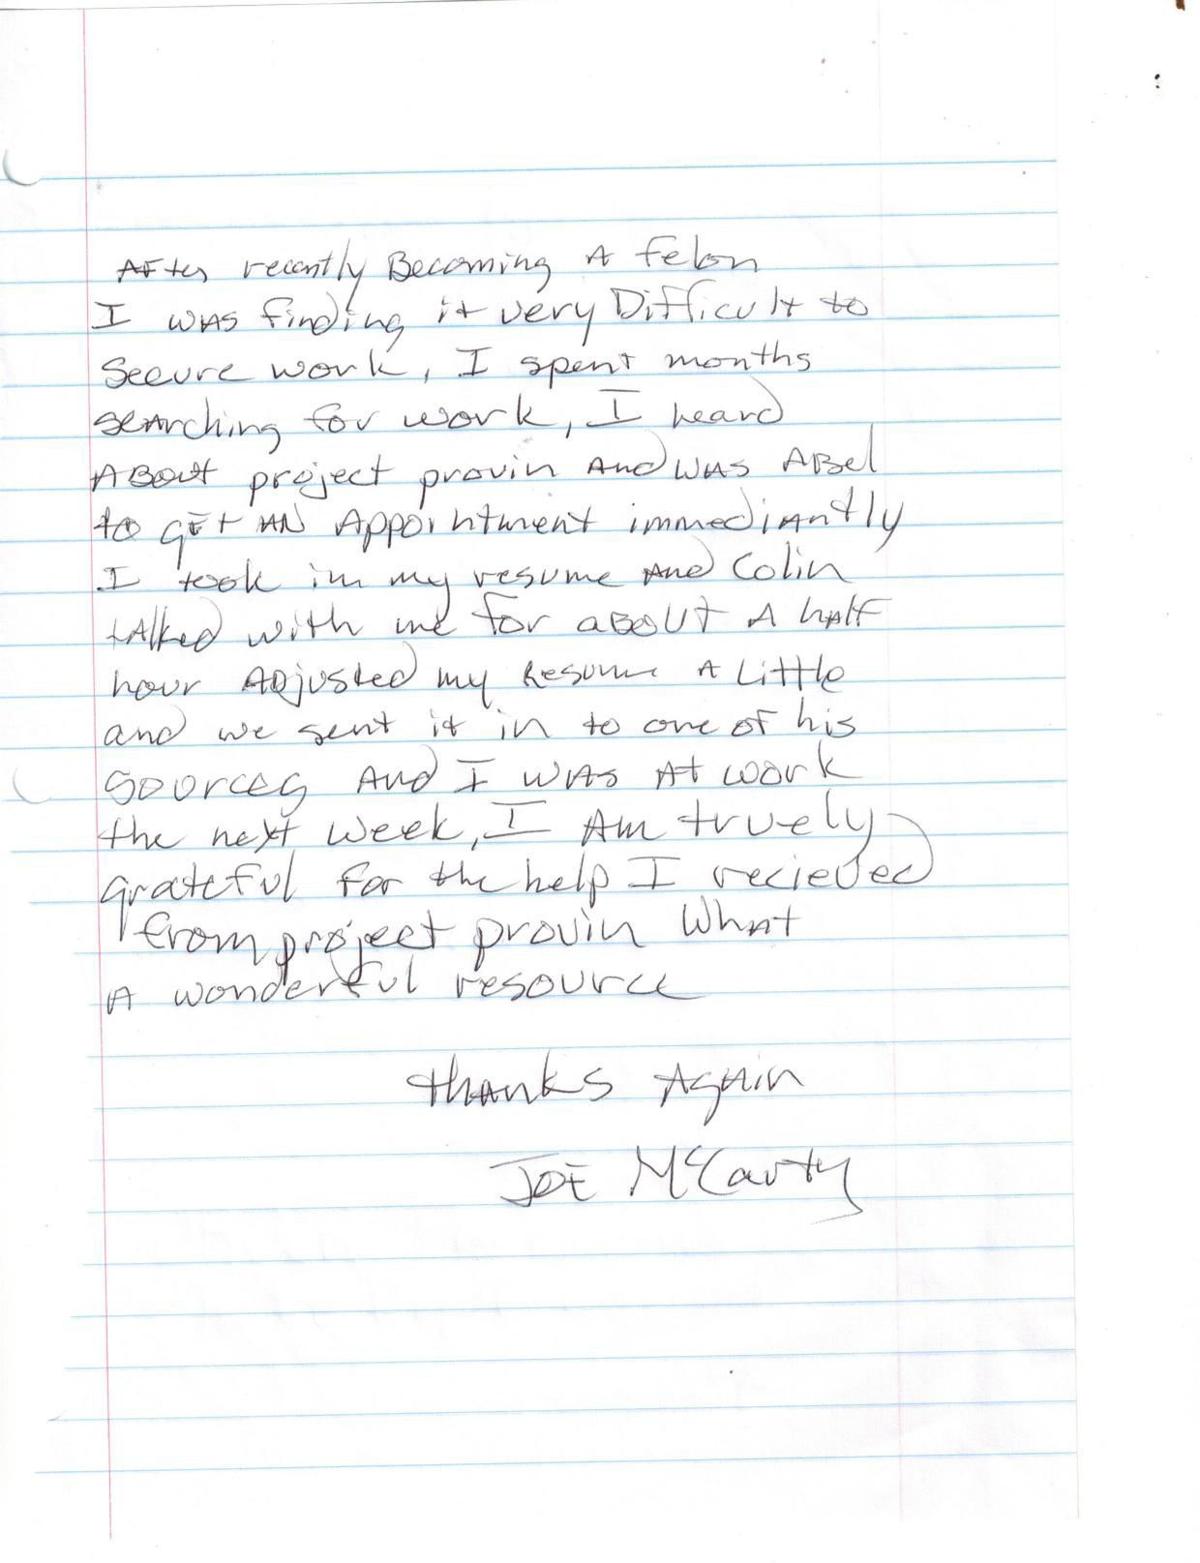 After recently Becoming A felon
I was finding it very Difficult to
Secure work, I spent months
searching for work, I heard
ABout project provin And was ABel
to get AN Appointment immediantly
I took im my resume And Colin
talked with me for aBOUT A half
hour ADjusted my Resume A Little
and we sent it in to one of his
sources And I was At work
the next week, I Am truely
grateful for the help I recieved
from project provin What
A wonderful resource
thanks Again
JOE McCarty